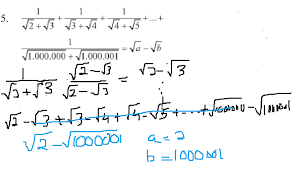 5. 1/(√2+√3) + 1/(√3+√4) + 1/(√4+√5) + ... +
1/(√1.000.000+√1.000.001) = √a - √b
1/(√2+√3) (√2-√3)/(√2-√3) = √2-√3
√2-√3+√3-√4+√4-√5+...+√1000000-√1000001
√2-√1000001
a=2
b=1000001